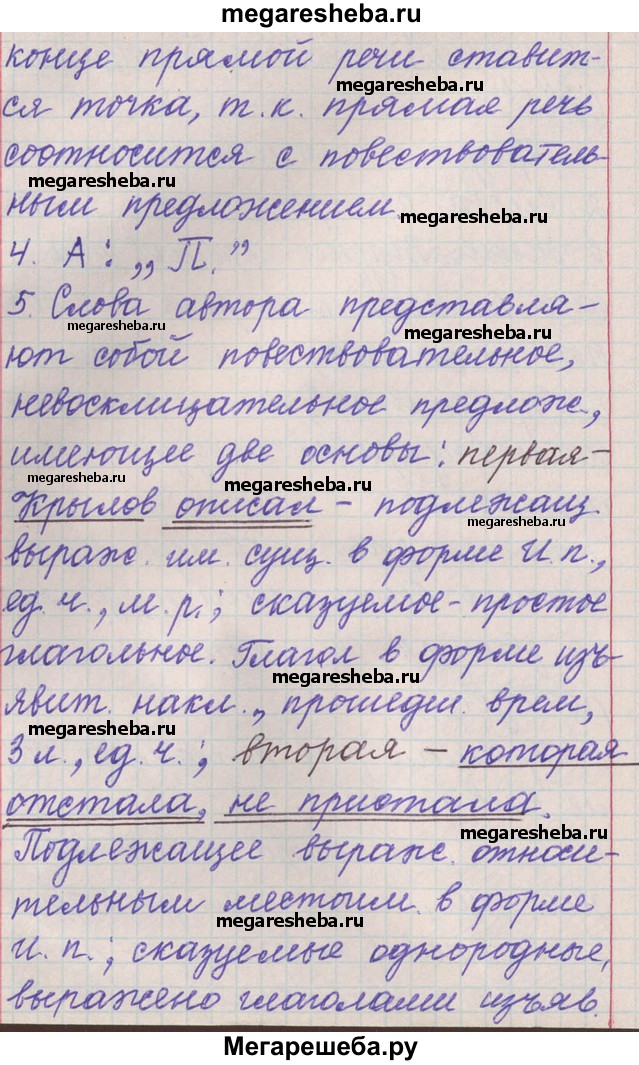 megaresheba.ru
конце прямой речи ставит-
megaresheba.ru
ся точка, т.к. прямая речь
соотносится с повествователь-
megaresheba.ru
ным предложением.
megaresheba.ru
4. А: „П."
5. Слова автора представля-
megaresheba.ru
megaresheba.ru
ют собой повествовательное,
невосклицательное предлож.,
имеющее две основы: первая-
megaresheba.ru
megaresheba.ru
Крылов описал - подлежащ.
megaresheba.ru
выраж. им. сущ. в форме И.п.,
ед.ч., м.р.; сказуемое-простое
глагольное. Глагол в форме изъ-
megaresheba.ru
явит. накл., прошедш. врем,
megaresheba.ru
3 л., ед.ч.; вторая - которая
отстала, не пристала.
megaresheba.ru
Подлежащее выраж. относи-
тельным местоим. в форме
megaresheba.ru
И.п.; сказуемые однородные,
выражено глаголами изъяв.
Мегарешеба.ру